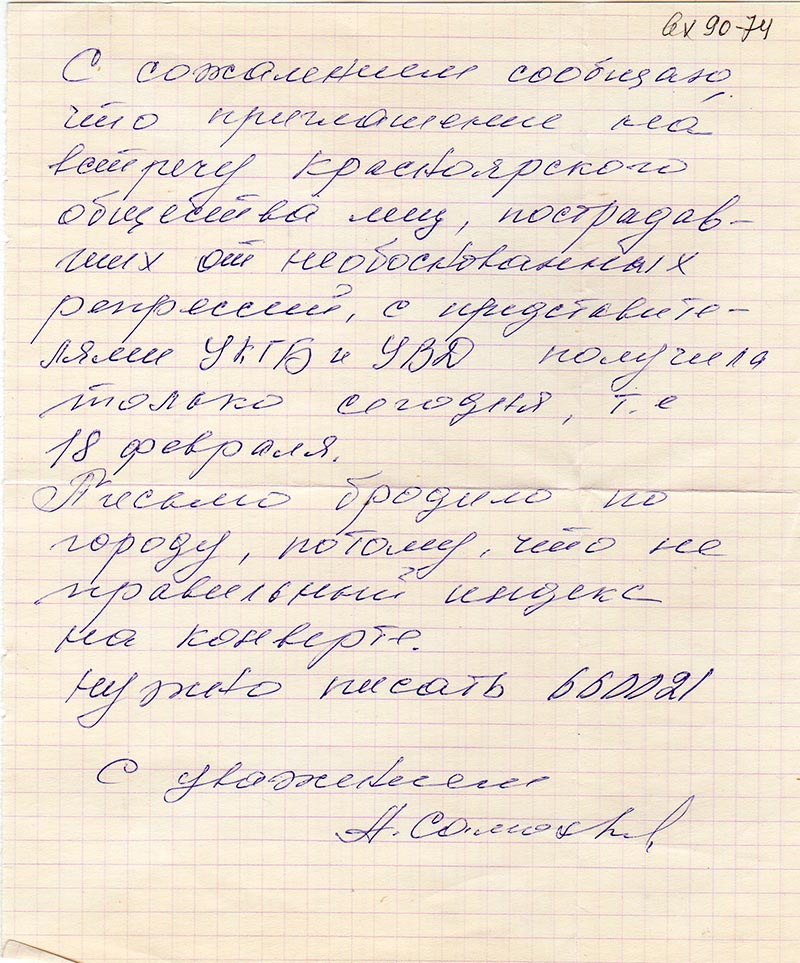 вх 90-74
С сожалением сообщаю,
что приглашение на
встречу Красноярского
общества лиц, пострадав-
ших от необоснованных
репрессий, с представите-
лями УКГБ и УВД получила
только сегодня, т.е
18 февраля.
Письмо бродило по
городу, потому, что не
правильный индекс
на конверте.
Нужно писать 660021
С уважением
А.